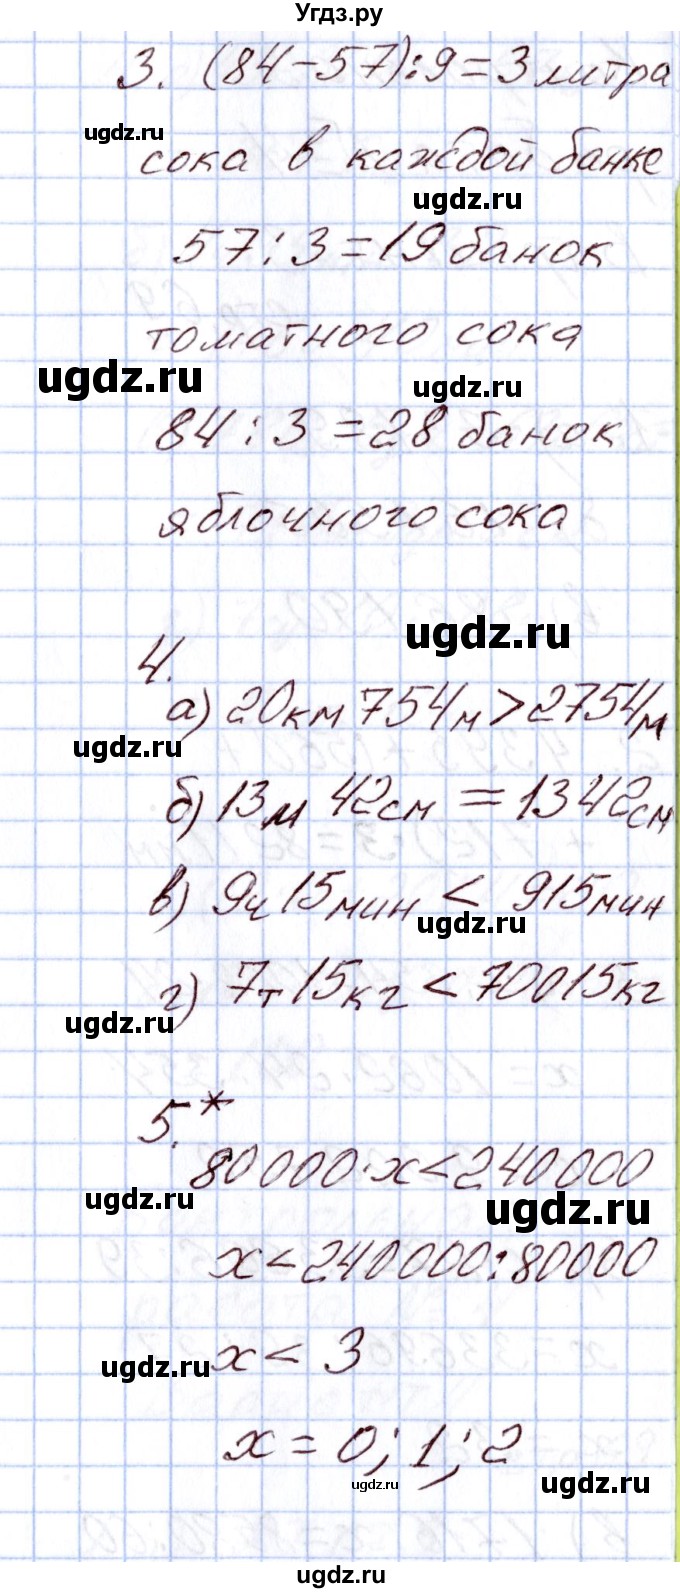 Угдз.ру
3. (84-57):9=3 литра
ugdz.ru
сока в каждой банке
ugdz.ru
57:3=19 банок
томатного сока
ugdz.ru
ugdz.ru
84:3=28 банок
яблочного сока
ugdz.ru
4.
а) 20км 754м>2754м
ugdz.ru
б) 13м 42см=1342см
в) 9ч15мин< 915мин
ugdz.ru
г) 7т15кг<70015кг
ugdz.ru
5.*
80000·x<240000
ugdz.ru
ugdz.ru
x<240000:80000
x< 3
ugdz.ru
x=0;1;2
ugdz.ru
ugdz.ru
ugdz.ru